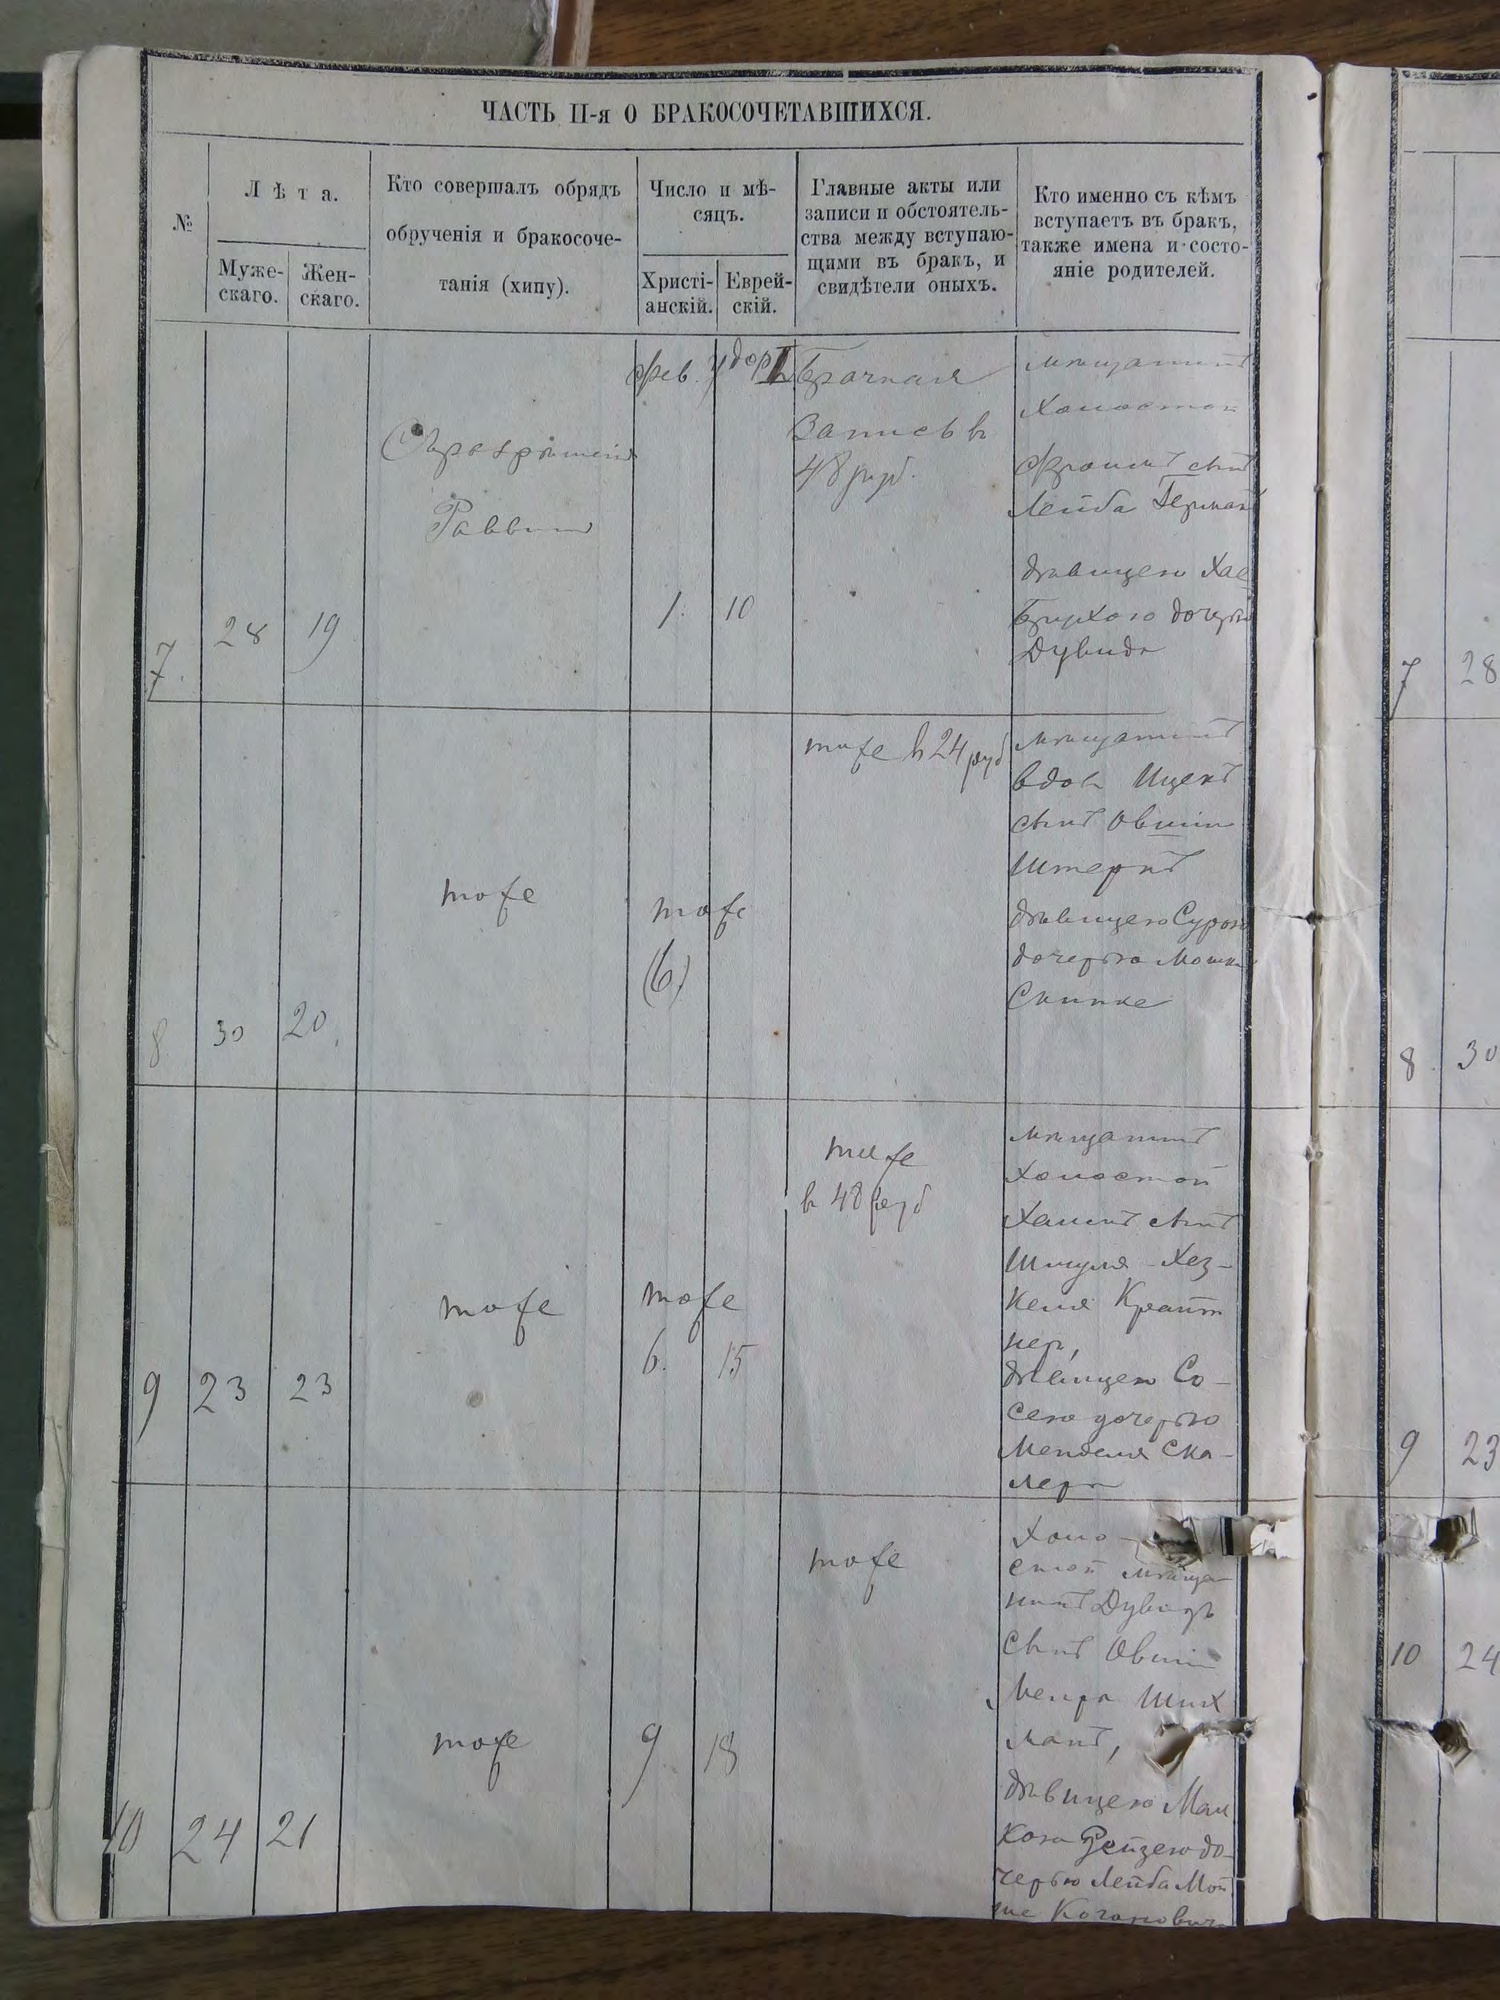 ЧАСТЬ II-я О БРАКОСОЧЕТАВШИХСЯ.
№
Лѣта.
Муже-
скаго.
Жен-
скаго.
Кто совершалъ обрядъ
обрученія и бракосоче-
танія (хипу).
Число и мѣ-
сяцъ.
Христі-
анскій.
Еврей-
скій.
Главные акты или
записи и обстоятель-
ства между вступаю-
щими въ бракъ, и
свидѣтели оныхъ.
Кто именно съ кѣмъ
вступаетъ въ бракъ,
также имена и состо-
яніе родителей.
7.
28
19
Раввинъ
Фев.
1.
10
Брачная
Запись въ
48 руб.
мѣщанинъ
Холостой
Лейба
дѣвицею Хае
дочерью
Дувида
8
30
20.
тоже
тоже
(6.)
тоже в 24 руб
мѣщанинъ
вдов Ицекъ
сынъ Овши
Штернъ
дѣвицею Сурою
дочерью Мошка
9
23
23
тоже
тоже
6.
15
тоже
в 48 руб
мѣщанинъ
Холостой
Хаимъ сынъ
Шмуля-Хез-
келя Крайт
нер,
дѣвицею Со-
сею дочерью
Менделя Ска-
лера
10
24
21
тоже
9
18
тоже
Холо-
стой мѣща
нинъ Дувидъ
сынъ Овши
Меира Ших
манъ,
дѣвицею Мал
кою Рейзею до-
черью Лейба Мой
ше Когановича
7
28
8
30
9
23
10
24